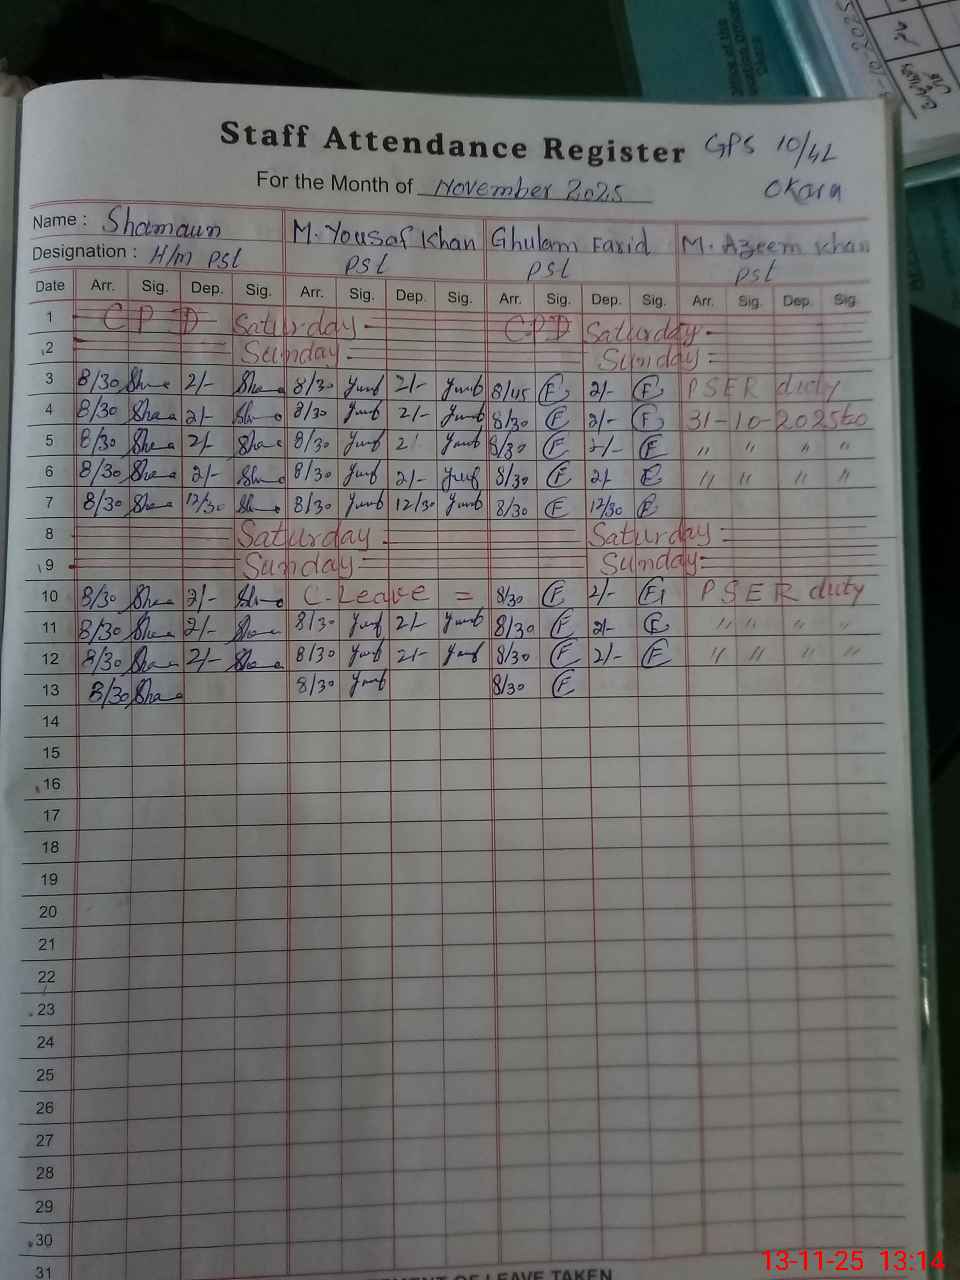 Staff Attendance Register GPS 10/4L
For the Month of November 2025 Okara
Name : Shamaun M. Yousaf Khan Ghulam Farid M. Azeem Khan
Designation : H/m PST PST PST PST
Date Arr. Sig. Dep. Sig. Arr. Sig. Dep. Sig. Arr. Sig. Dep. Sig. Arr. Sig. Dep. Sig.
1 CPD Saturday CPD Saturday
2 Sunday Sunday
3 8/30 Sha 2/- Sha 8/30 2/- 8/45 F 2/- F PSER duty
4 8/30 Sha 2/- Sha 8/30 2/- 8/30 F 2/- F 31-10-2025 to
5 8/30 Sha 2/- Sha 8/30 2/ 8/30 F 2/- F " " " "
6 8/30 Sha 2/- Sha 8/30 2/- 8/30 F 2/ F " " " "
7 8/30 Sha 12/30 Sha 8/30 12/30 8/30 F 12/30 F
8 Saturday Saturday
9 Sunday Sunday
10 8/30 Sha 2/- Sha C-Leave = 8/30 F 2/- F PSER duty
11 8/30 Sha 2/- Sha 8/30 2/- 8/30 F 2/- F " " " "
12 8/30 Sha 2/- Sha 8/30 2/- 8/30 F 2/- F " " " "
13 8/30 Sha 8/30 8/30 F
14
15
16
17
18
19
20
21
22
23
24
25
26
27
28
29
30
31
OF LEAVE TAKEN
13-11-25 13:14